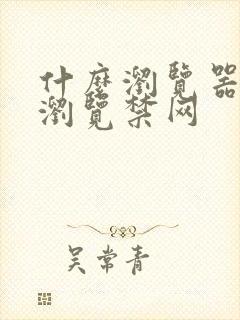 什麼瀏覽器
瀏覽禁网
吴常青